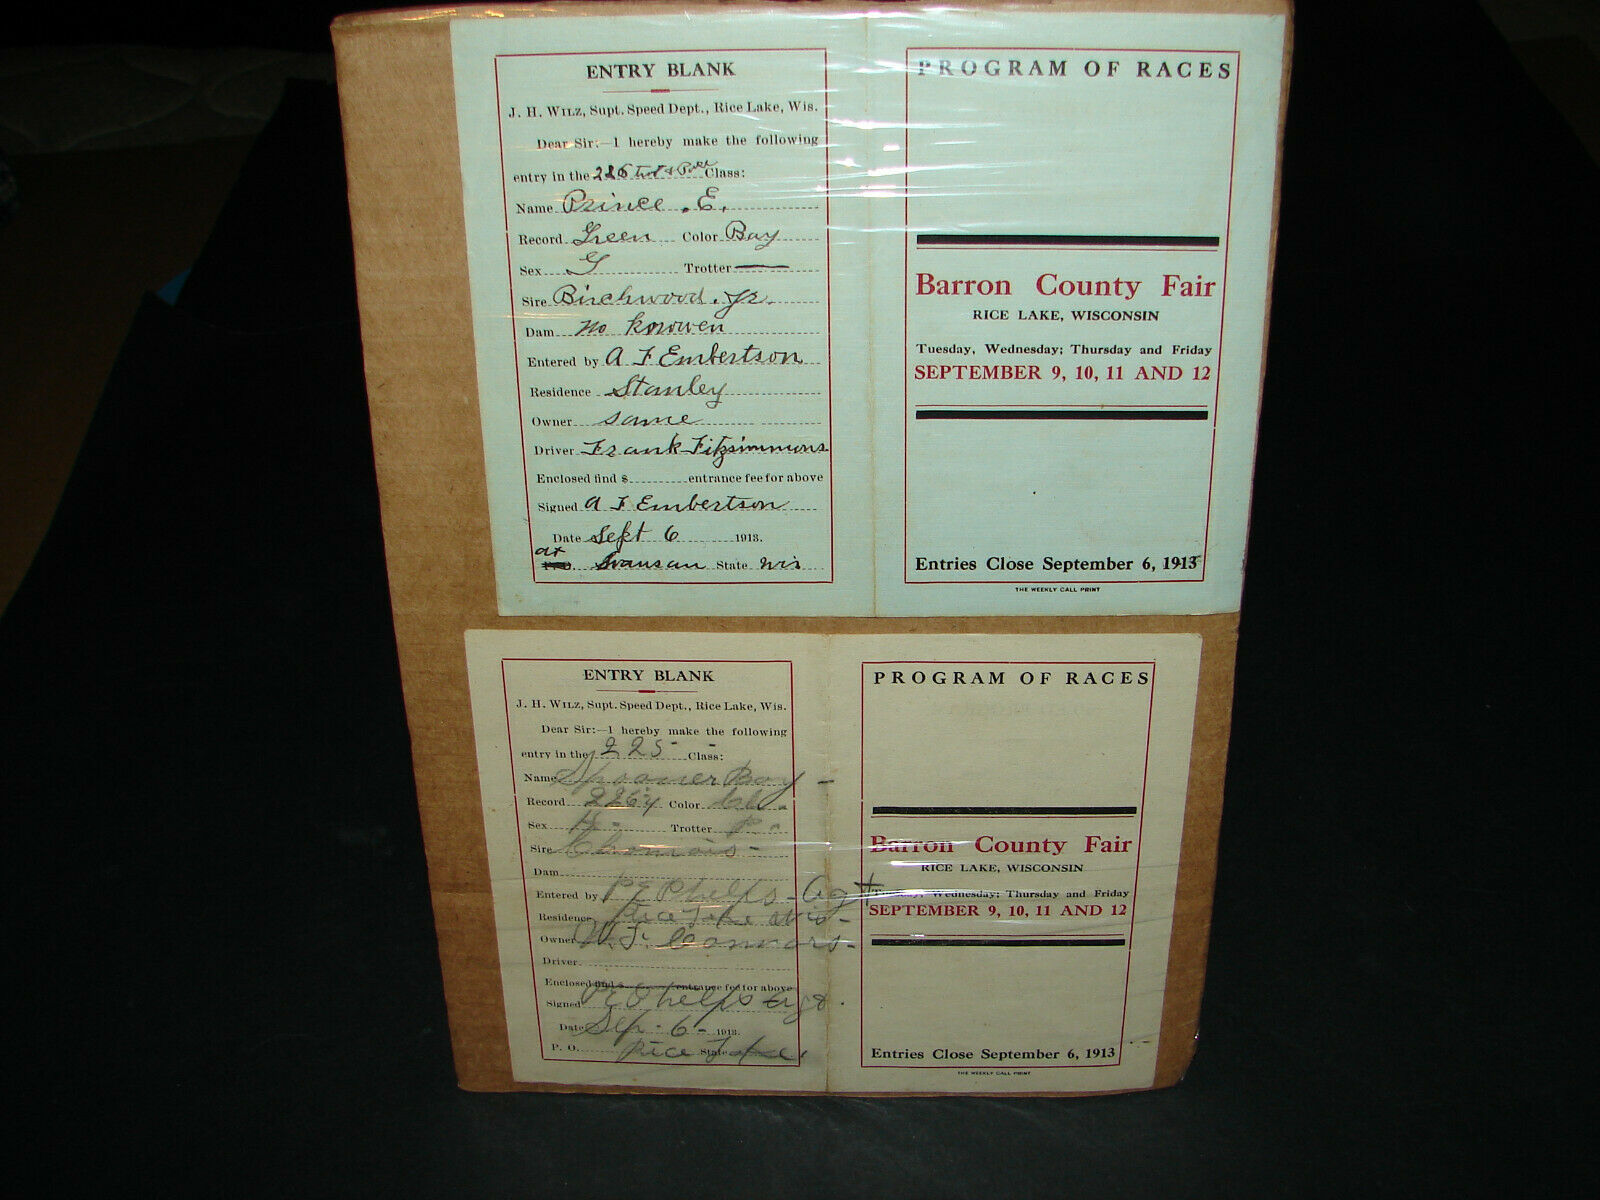 ENTRY BLANK
J. H. WILZ, Supt. Speed Dept., Rice Lake, Wis.
Dear Sir:—I hereby make the following
entry in the 226 trot & Class:
Name Prince .E.
Record Green Color Bay
Sex G Trotter —
Sire Birchwood. Jr.
Dam no knowen
Entered by A F Embertson
Residence Stanley
Owner same
Driver Frank Fitzsimmons
Enclosed find $ entrance fee for above
Signed A F Embertson
Date Sept 6 1913.
at State Wis
PROGRAM OF RACES
Barron County Fair
RICE LAKE, WISCONSIN
Tuesday, Wednesday; Thursday and Friday
SEPTEMBER 9, 10, 11 AND 12
Entries Close September 6, 1913
THE WEEKLY CALL PRINT
ENTRY BLANK
J. H. WILZ, Supt. Speed Dept., Rice Lake, Wis.
Dear Sir:—I hereby make the following
entry in the 225 - - Class:
Name Spooner Boy -
Record 226¼ Color
Sex H - Trotter P. -
Sire
Dam
Entered by P E Phelps - Agt
Residence Rice Lake Wis -
Owner W. F. Connors -
Driver
Enclosed find $ entrance fee for above
Signed P E Phelps Agt.
Date Sep - 6 - 1913.
P. O. Rice Lake State
PROGRAM OF RACES
Barron County Fair
RICE LAKE, WISCONSIN
Tuesday, Wednesday; Thursday and Friday
SEPTEMBER 9, 10, 11 AND 12
Entries Close September 6, 1913
THE WEEKLY CALL PRINT